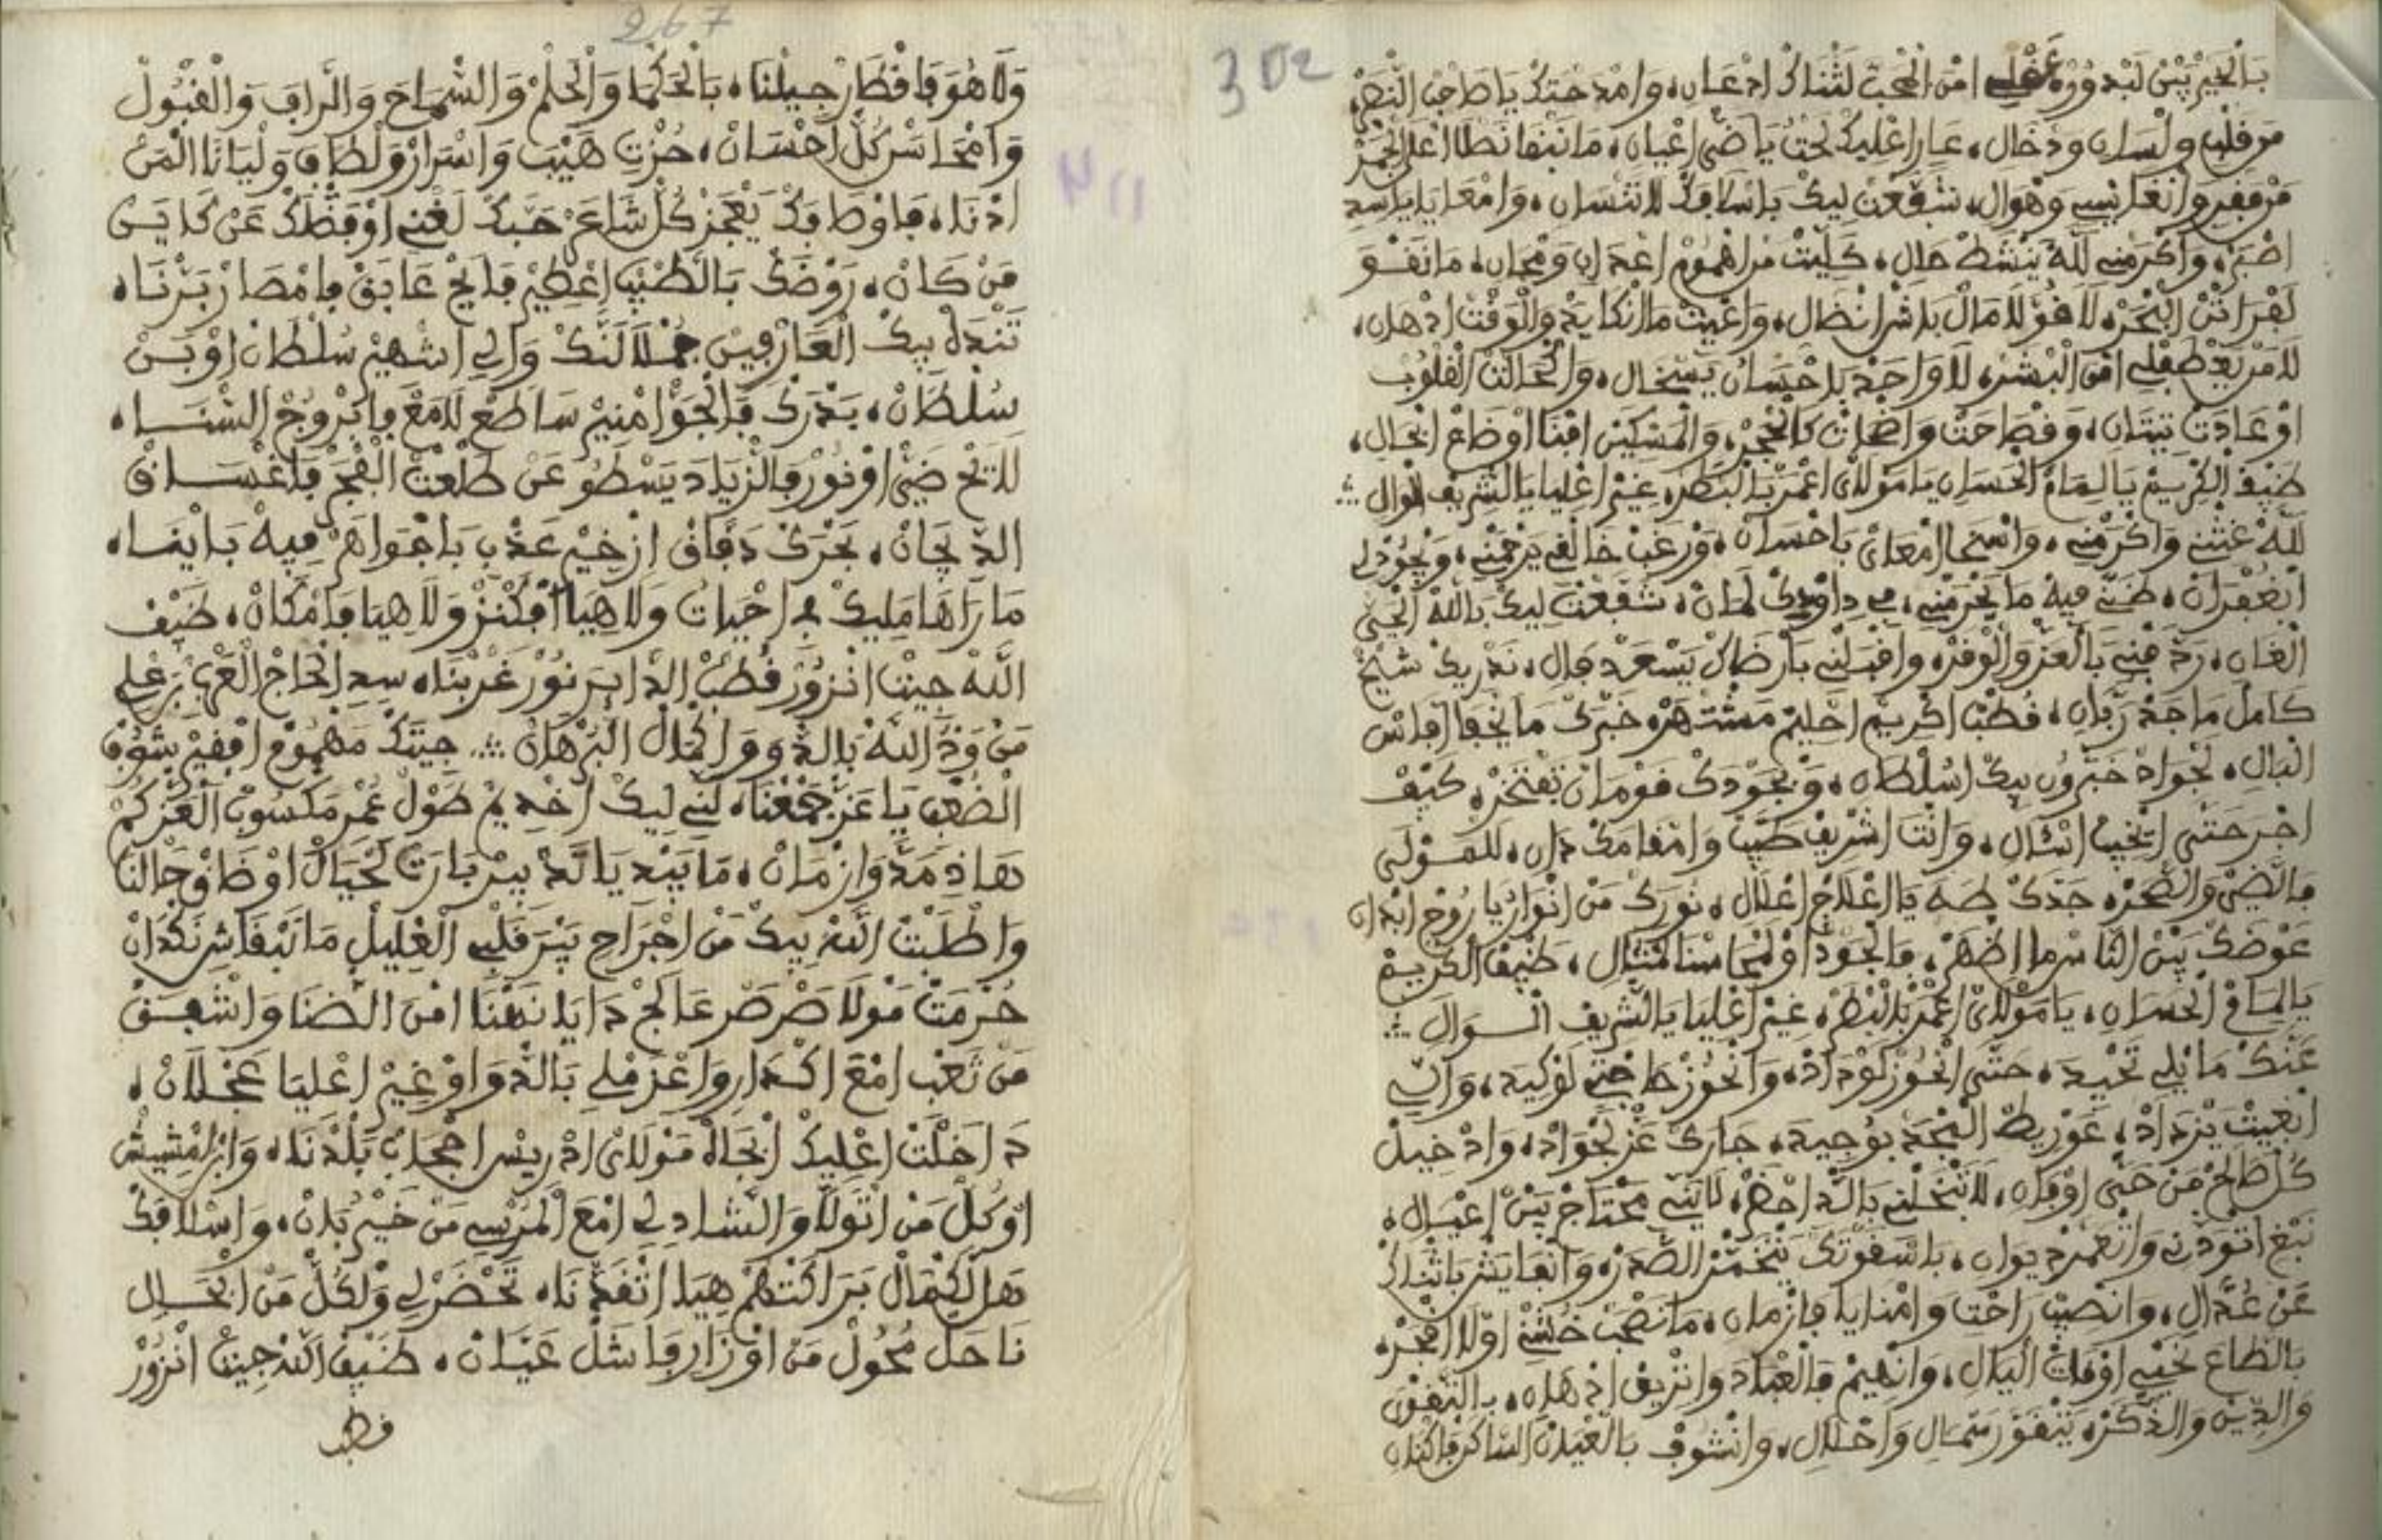 302
بَالْخِيرْ بِيْنْ لَبْدُورْ، عَقْلِي امْنْ الْحُبّ لَثْنَاكْ ادْعَانِ، وَامْدَحْتَكْ يَا صَاحْبْ النّصْرْ
مَنْ قَلْبِ وَلْسَانِ وَدْخَالِ، عَارِ اعْلِيكْ لَحْتُ يَا ضَيّ اعْيَانِ، مَا نَبْقَا نَصْلَا اعْلَ الْجْمَرْ
شَفَّعْتْ لِيكْ بَاسْلَافَكْ لَا تَنْسَانِ، وَامْعَايَا يَا سِيدِ
اصْبَرْ، وَاكْرَمْنِي لَلّهْ يَنْشَطْ حَالِ، كَلِّيتْ مَنْ اهْمُومْ اعْدَايَ وَمْحَانِ، مَا نَقْوَ
لَا قُوّ لَا مَالْ بَاشْ انْضَالِ، وَاعْيِيتْ مَا انْكَابَدْ وَالْوَقْتْ ادْهَانِ،
امْنْ الْبْشَرْ، لَا وَاحَدْ بَاحْسَانُ يَسْخَالِ، وَاكْحَالَتْ الْقْلُوبْ
اوْعَادَتْ تِيتَانِ، وَفْضَاحَتْ وَاصْحَاتْ كَالْحْجَرْ، وَالْمَسْكِينْ افْنَا اوْضَاعْ انْحَالِ،
ضَيْفْ الْكْرِيمْ يَا لِمَامْ الْحْسَانِ يَا مُولَايْ اعْمَرْ بَالنْظَرْ، غِيرْ اعْلِيَا يَا الشّرِيفْ الْوَالِ ⁘
لَلّهْ غِثْنِي وَاكْرَمْنِي، وَاسْخَا امْعَايْ بَاحْسَانْ، وَرْغَبْ خَالْقِي يَرْحَمْنِي، وَيْجُودْ لِي
ابْغُفْرَانْ، ظَنِّي فِيهْ مَا يَحْرَمْنِي، شَفَّعْتْ لِيكْ بَاللّهْ الْحَيّ
الْغَانِ، رَدّ مْنِي بَالْعَزّ وَالْوْفَرْ، وَاقْبَلْنِي بَارْضَاكْ يَسْعَدْ فَالِ، نَدْرِيكْ شِيخْ
كَامَلْ مَاجَدْ رَبَّانِ، قُطْبْ اكْرِيمْ احْلِيمْ مَشْتَهَرْ، خَبْرَكْ مَا يَخْفَا افْنَاسْ
الْبَالِ، لَجْوَادْ خَبّرُونِ بِيكْ اسُلْطَانِ، وَبْجُودَكْ قَوْمَانْ تَفْتَخَرْ، كِيفْ
اخْبَرْ حَتَّى ايْخِيبْ انْسَالِ، وَانْتَ اشْرِيفْ طَيَّبْ وَامْقَامَكْ دَانِ، لَلْمُولَى
فَالضّيْ وَالصْحَرْ، جَدّكْ طَهَ يَا اعْلَاجْ اعْلَالِ، نُورَكْ مَنْ انْوَارُ يَا رُوحْ ابْدَانِ
عَوْضَكْ بِينْ النّاسْ مَا اظْهَرْ، فَالْجُودْ اوْلَمْحَاسْنَا مْثَالِ، ضَيْفْ الْكْرِيمْ
يَا لِمَامْ الْحْسَانِ، يَا مُولَايْ اعْمَرْ بَالنْظَرْ، غِيرْ اعْلِيَا يَا الشّرِيفْ الْوَالِ ⁘
عَنَّكْ مَا نْلِي تَحْيِيدَ، حَتَّى انْحُوزْ لَوْدَادْ، وَانْحُوزْ حَاجْتِي لَوْكِيدَ، وَالِّي
ابْغِيتْ يَزْدَادْ، عَوْرِيطْ النَّجْدَ بُوجِيهْ، جَارَكْ عَزّ لَجْوَادْ، وَادْخِيلْ
كُلّ صَالَحْ مَنْ حَيّ اوْفَانِ، لَا تَبْخَلْنِي بَالدّاحْضَرْ، لَانِّي مَحْتَاجْ بِينْ اعْيَالِ،
نَبْغِ اتْوَدْنِ وَاتْعَمَّرْ دِيوَانِ، بَاسْقُوتَكْ يَتْخَمَّرْ الصْدَرْ، وَانْقَايَسْ بَاثْنَاكْ
عَنْ عُدَّالِ، وَانْصِيبْ رَاحْتِ وَامْنَايَا فَازْمَانِ، مَا نَصْحَبْ خُشْنِي اوْلَا افْجَرْ،
بَالطَّاعَ نَحْيِي اوْقَاتْ الْيَالِ، وَانْهِيمْ فَالْعْبَادَ وَانْزِيفْ ادْهَانِ، بِالتّقْوَى
وَالدِّينْ وَالذّكَرْ، يَتْقَوَّ رَسْمَالِ وَاحْلَالِ، وَانْشُوفْ بَالْعْيَانْ السَّاكَنْ فَاكْنَانِ
267
وَلَا هُوَ فَاقْطَارْ جِيلْنَا، بَالْحَكْمَا وَالْحَلْمْ وَالسّْمَاحَ وَالرَّافَ وَالْقْبُولْ
وَامْحَاسَنْ كُلّ احْسَانْ، حُزْتِ هَيْبَ وَاسْرَارْ وَلْطَافَ وَلْيَانَا الْمَنْ
ادْنَا، فَاوْصَافَكْ يَعْجَزْ كُلّ شَاعَرْ حَبَّكْ لَغْنِي اوْفَضْلَكْ عَنْ كَايَنْ
مَنْ كَانْ، رَوْضَكْ بَالطّيبْ اعْطِيرْ فَايَحْ عَابَقْ فَامْصَارْ بَرّنَا،
تَنْدَهْ بِيكْ الْعَارْفِينْ جُمْلَا لَنَّكْ وَالِي اشْهِيرْ سُلْطَانْ اوْبَنْ
سُلْطَانْ، بَدْرَكْ فَالْجَوّ امْنِيرْ سَاطَعْ لَامَعْ فَابْرُوجْ السْنَا،
لَايَحْ ضَيّ اوْنُورْ فَالزّيَادَ يَسْطُو عَنْ طَلْعَتْ الْفْجَرْ فَاغْسَاقْ
الدّيجَانْ، بَحْرَكْ دَفَّاقْ ازْخِيرْ عَذْبِ بَاجْوَاهَرْ فِيهْ بَايْنَا،
مَا رَاهَا مَلِيكْ فِ احْيَاتُ وَلَا هِيَا افْكَنْزْ وَلَا هِيَا فَامْكَانْ، ضَيْفْ
اللّهْ جِيتْ انْزُورْ قُطْبْ الدّايَرْ نُورْ غَرْبْنَا، سِيدِ الْحَاجْ الْعَرْبِي بَنْ عْلِي
مَنْ وَدّ اللّهْ بَالدّوَ وَاكْمَالْ الْبَرْهَانْ ⁘ جِيتَكْ مَهْمُومْ افْقِيرْ بِثَوْبْ
الضْعْفْ يَا عَزّ جْمَعْنَا، لَنِّي لِيكْ اخْدِيمْ طُولْ عُمْرِ مَكْسُوبْ الْعَزّكُمْ
هَاذِ مَدّ وَازْمَانْ، مَا بِيدِ يَا لَدّ بِيرْ بَارَتْ لَحْيَالْ اوْضَاقْ حَالْنَا
وَاطْلَبْتْ اللّهْ بِيكْ مَنْ اجْرَاحِ يَبْرَ قَلْبِي الْعْلِيلْ مَا نَبْقَاشِ نَكْدَانْ
حُرْمَتْ مُولَا صَرْصَرْ عَالَجْ دَايَا نَهْنَا امْنْ الضّنَا وَانْشَفَقْ
مَنْ تَعْبِ امْعَ اكْدَارِ وَاعْزَمْلِي بَالدّوَا وْغِيرْ اعْلِيَا عَجْلَانْ،
دَاخَلْتْ اعْلِيكْ ابْجَاهْ مُولَايْ ادْرِيسْ احْجَابْ بَلْدْنَا، وَابْنْ مْشِيشْ
اوْكُلّ مَنْ اتْوَلَّا وَالشَّادلِي امْعَ الْمَرْسِي مَنْ خَيْرُ بَانْ، وَاسْلَافَكْ
هَلْ لَكْمَالْ بَرَاكَتْهُمْ هِيَا اتْفَدّنَا، تَحْضَرْ لِي وَلْكُلّ مَنْ ابْحَالِ
نَاحَلْ مْحُولْ مَنْ اوْزَارُ فَاشَلْ عَيَّانْ، ضَيْفْ اللّهْ جِيتْ انْزُورْ
قطب